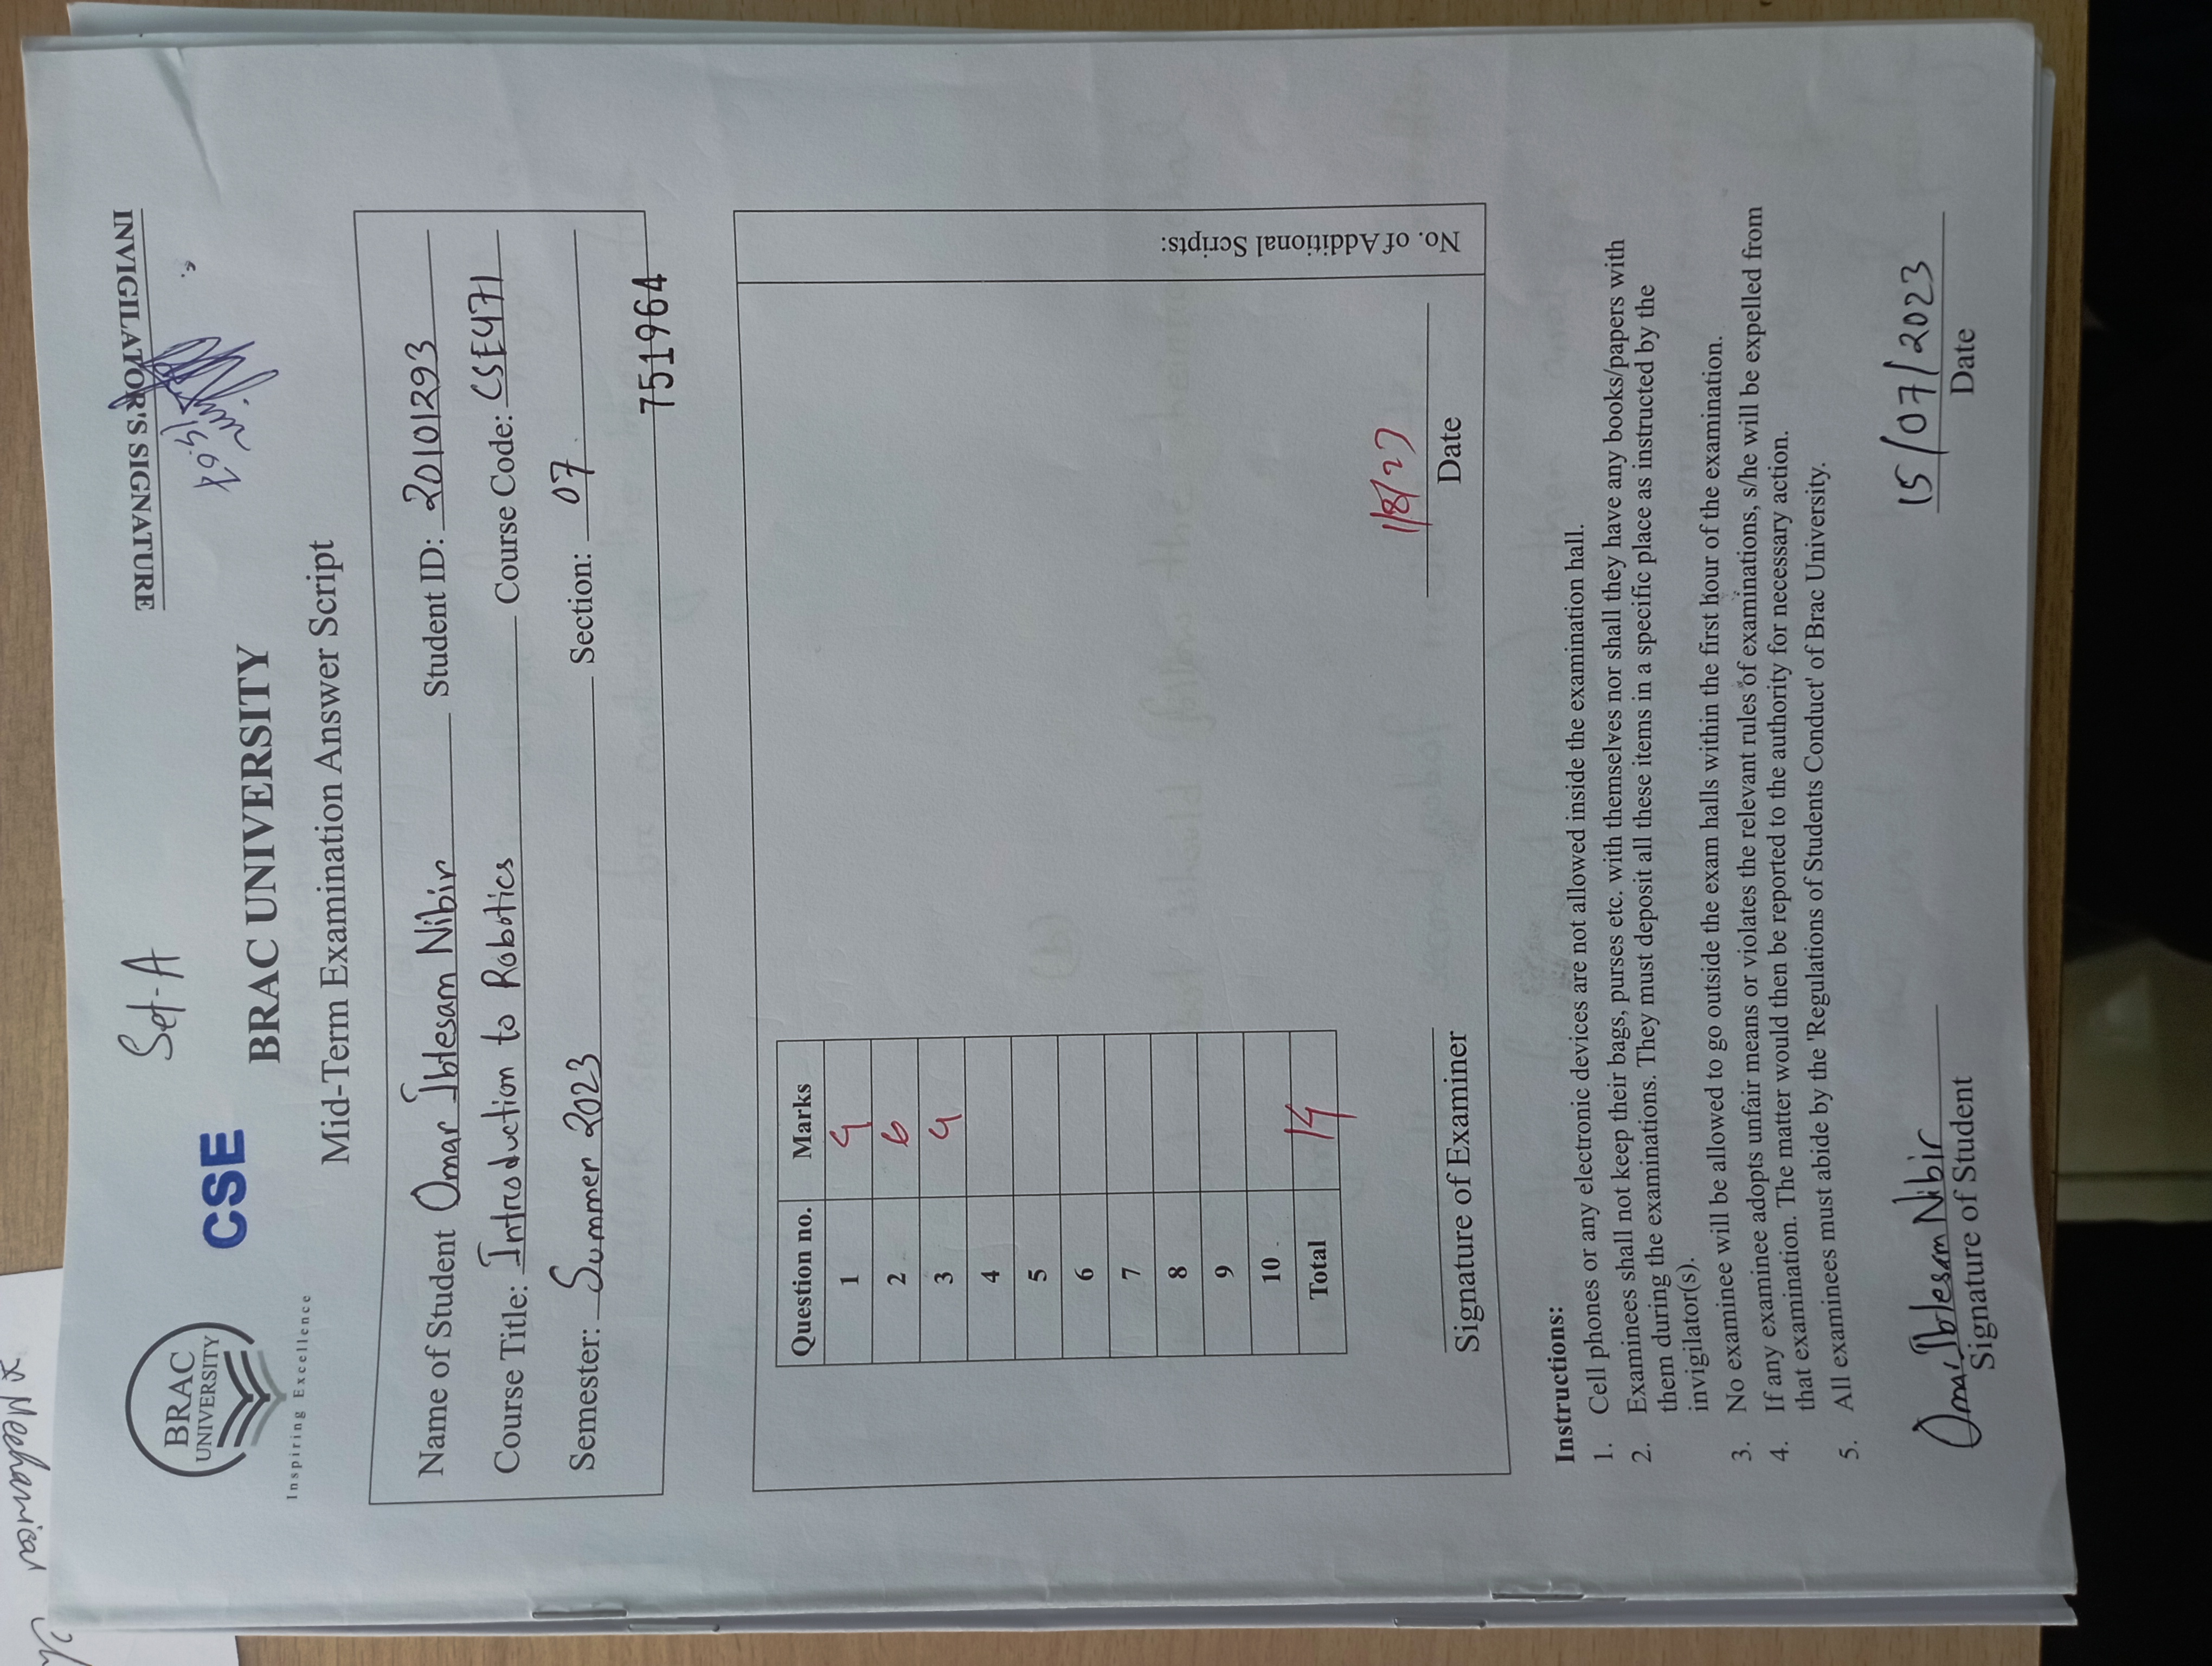 x Mechanical
Set-A
INVIGILATOR'S SIGNATURE
15.07
BRAC
UNIVERSITY
Inspiring Excellence
CSE
BRAC UNIVERSITY
Mid-Term Examination Answer Script
Name of Student Omar Ibtesam Nibir Student ID: 20101293
Course Title: Introduction to Robotics Course Code: CSE471
Semester: Summer 2023 Section: 07
751964
Question no. Marks
1 4
2 6
3 4
4
5
6
7
8
9
10
Total 14
No. of Additional Scripts:
1/8/23
Signature of Examiner Date
Instructions:
1. Cell phones or any electronic devices are not allowed inside the examination hall.
2. Examinees shall not keep their bags, purses etc. with themselves nor shall they have any books/papers with
them during the examinations. They must deposit all these items in a specific place as instructed by the
invigilator(s).
3. No examinee will be allowed to go outside the exam halls within the first hour of the examination.
4. If any examinee adopts unfair means or violates the relevant rules of examinations, s/he will be expelled from
that examination. The matter would then be reported to the authority for necessary action.
5. All examinees must abide by the 'Regulations of Students Conduct' of Brac University.
Omar Ibtesam Nibir 15/07/2023
Signature of Student Date